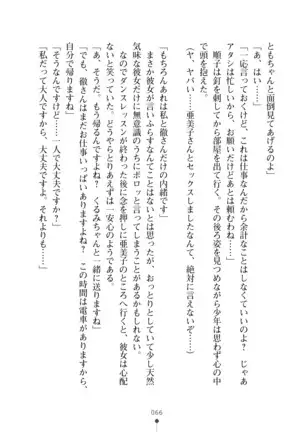 ともちゃんと面倒見てあげるのよ」
「あ、はい……」
「一応言っておくけど、これは仕事なんだから余計なことはしなくていいのよ？　じゃあ
アタシは忙しいから、お願いだけどあとは頼むわね……」
　順子は釘を刺してから部屋を出て行く。その後ろ姿を見つめながら少年は思わず心の中
で頭を抱えた。
（ヤ、ヤバい……亜美子さんとセックスしましたなんて、絶対に言えないぞ……）
「もちろんあれは私と徹さんだけの内緒です」
　まさか彼女が言いふらすなんてことはないとは思ったが、おっとりとしていて少し天然
気味な彼女だけに無意識のうちにポロッと言ってしまうことがあるかもしれない。
　なのでダンスレッスンが終わった後に念を押しに亜美子のところへ行くと、彼女は心配
ないと笑っていた。どうやらとりあえずは、安心のようである。
「あ、そうだ、もう帰るんですよね？　くるみちゃんと一緒に送りますね」
「徹さん、まだお仕事いっぱいありますよね？　この時間は電車がありますから、
自分で帰りますね」
「え、そうですか……一人で大丈夫ですか？」
「私だって大人ですから、大丈夫ですよ。それよりも……」
066